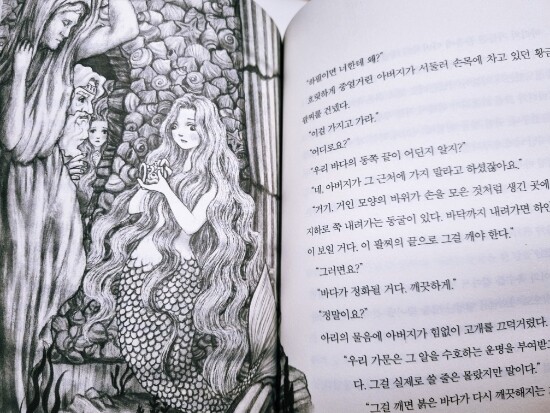 "하필이면 너한테 왜?"
흐릿하게 중얼거린 아버지가 서둘러 손목에 차고 있던 황금
팔찌를 건넸다.
"이걸 가지고 가라."
"어디로요?"
"우리 바다의 동쪽 끝이 어딘지 알지?"
"네, 아버지가 그 근처에 가지 말라고 하셨잖아요."
"거기, 거인 모양의 바위가 손을 모은 것처럼 생긴 곳에
지하로 쭉 내려가는 동굴이 있다. 바닥까지 내려가면 하얀
이 보일 거다. 이 팔찌의 끝으로 그걸 깨야 한다."
"그러면요?"
"바다가 정화될 거다. 깨끗하게."
"정말이요?"
아리의 물음에 아버지가 힘없이 고개를 끄덕거렸다.
"우리 가문은 그 알을 수호하는 운명을 부여받고
다. 그걸 실제로 쓸 줄은 몰랐지만 말이다."
"그걸 깨면 붉은 바다가 다시 깨끗해지는